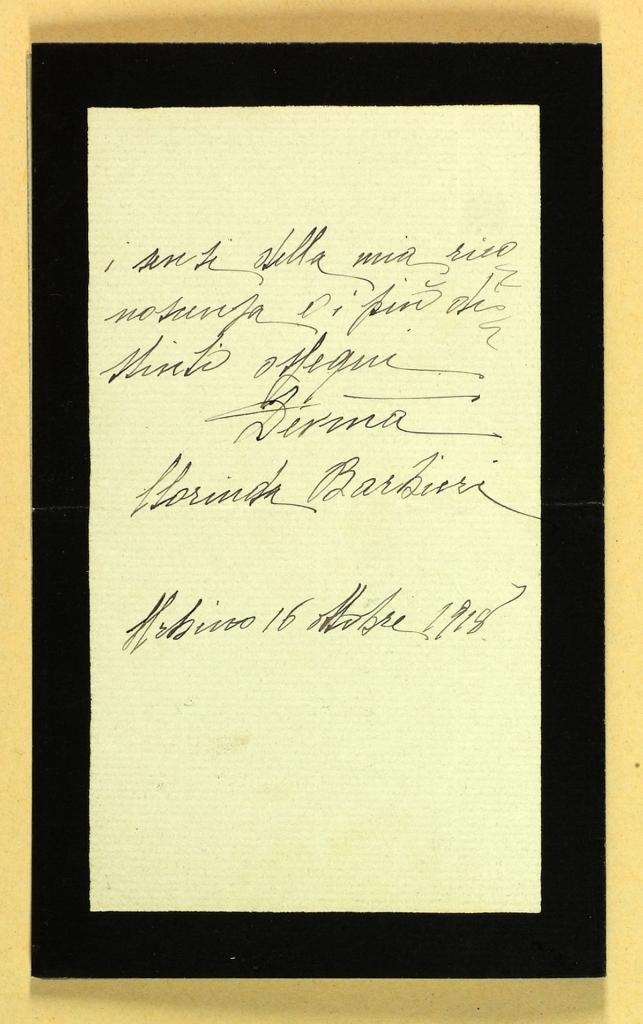 i sensi della mia rico
noscenza e i più di
stinti ossequi
Dev.ma
Clorinda Barbieri
Urbino 16 ottobre 1918